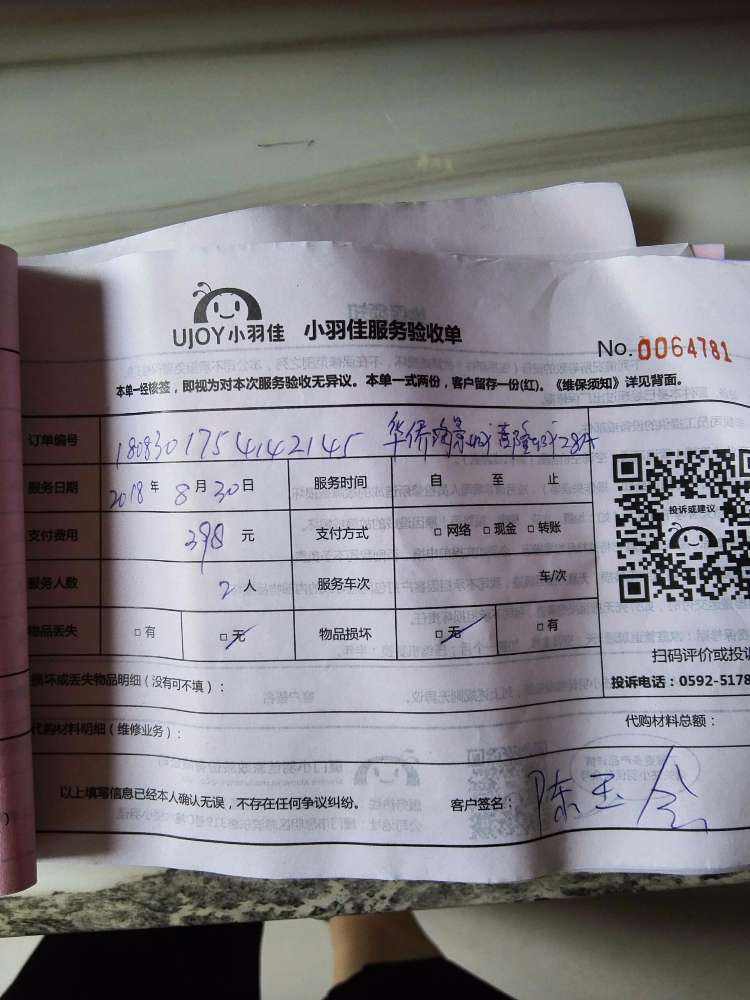 UJOY小羽佳 小羽佳服务验收单
No.0064781
本单一经核签，即视为对本次服务验收无异议。本单一式两份，客户留存一份(红)。《维保须知》详见背面。
订单编号 1808301754142145 华侨海景
服务日期 2018年 8月30日 服务时间 自 至 止
支付费用 398 元 支付方式 □ 网络 □ 现金 □ 转账
投诉或建议
服务人数 2 人 服务车次 车/次
物品丢失 □ 有 □ 无 物品损坏 □ 无 □ 有
扫码评价或投诉
损坏或丢失物品明细（没有可不填）：
投诉电话：0592-5178
代购材料明细（维修业务）：
代购材料总额：
以上填写信息已经本人确认无误，不存在任何争议纠纷。 客户签名：陈玉